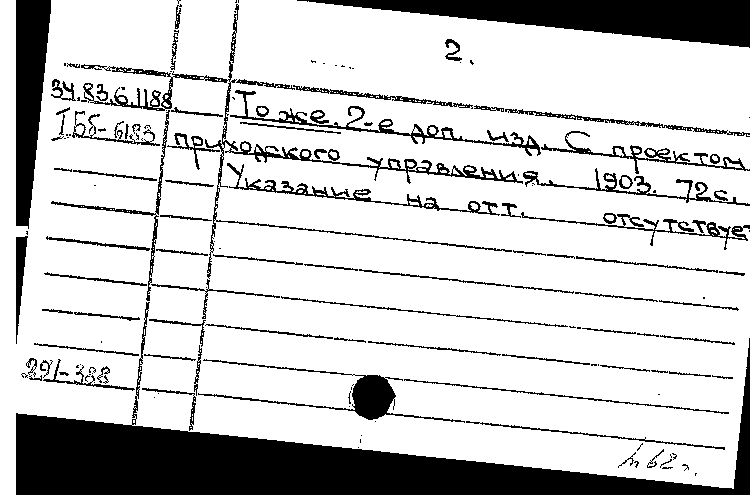 2.
34.83.6.1188. То же. 2-е доп. изд. С проектом
I Бб-6183 приходского управления. 1903. 72 с.
Указание на отт. отсутствует
291-388